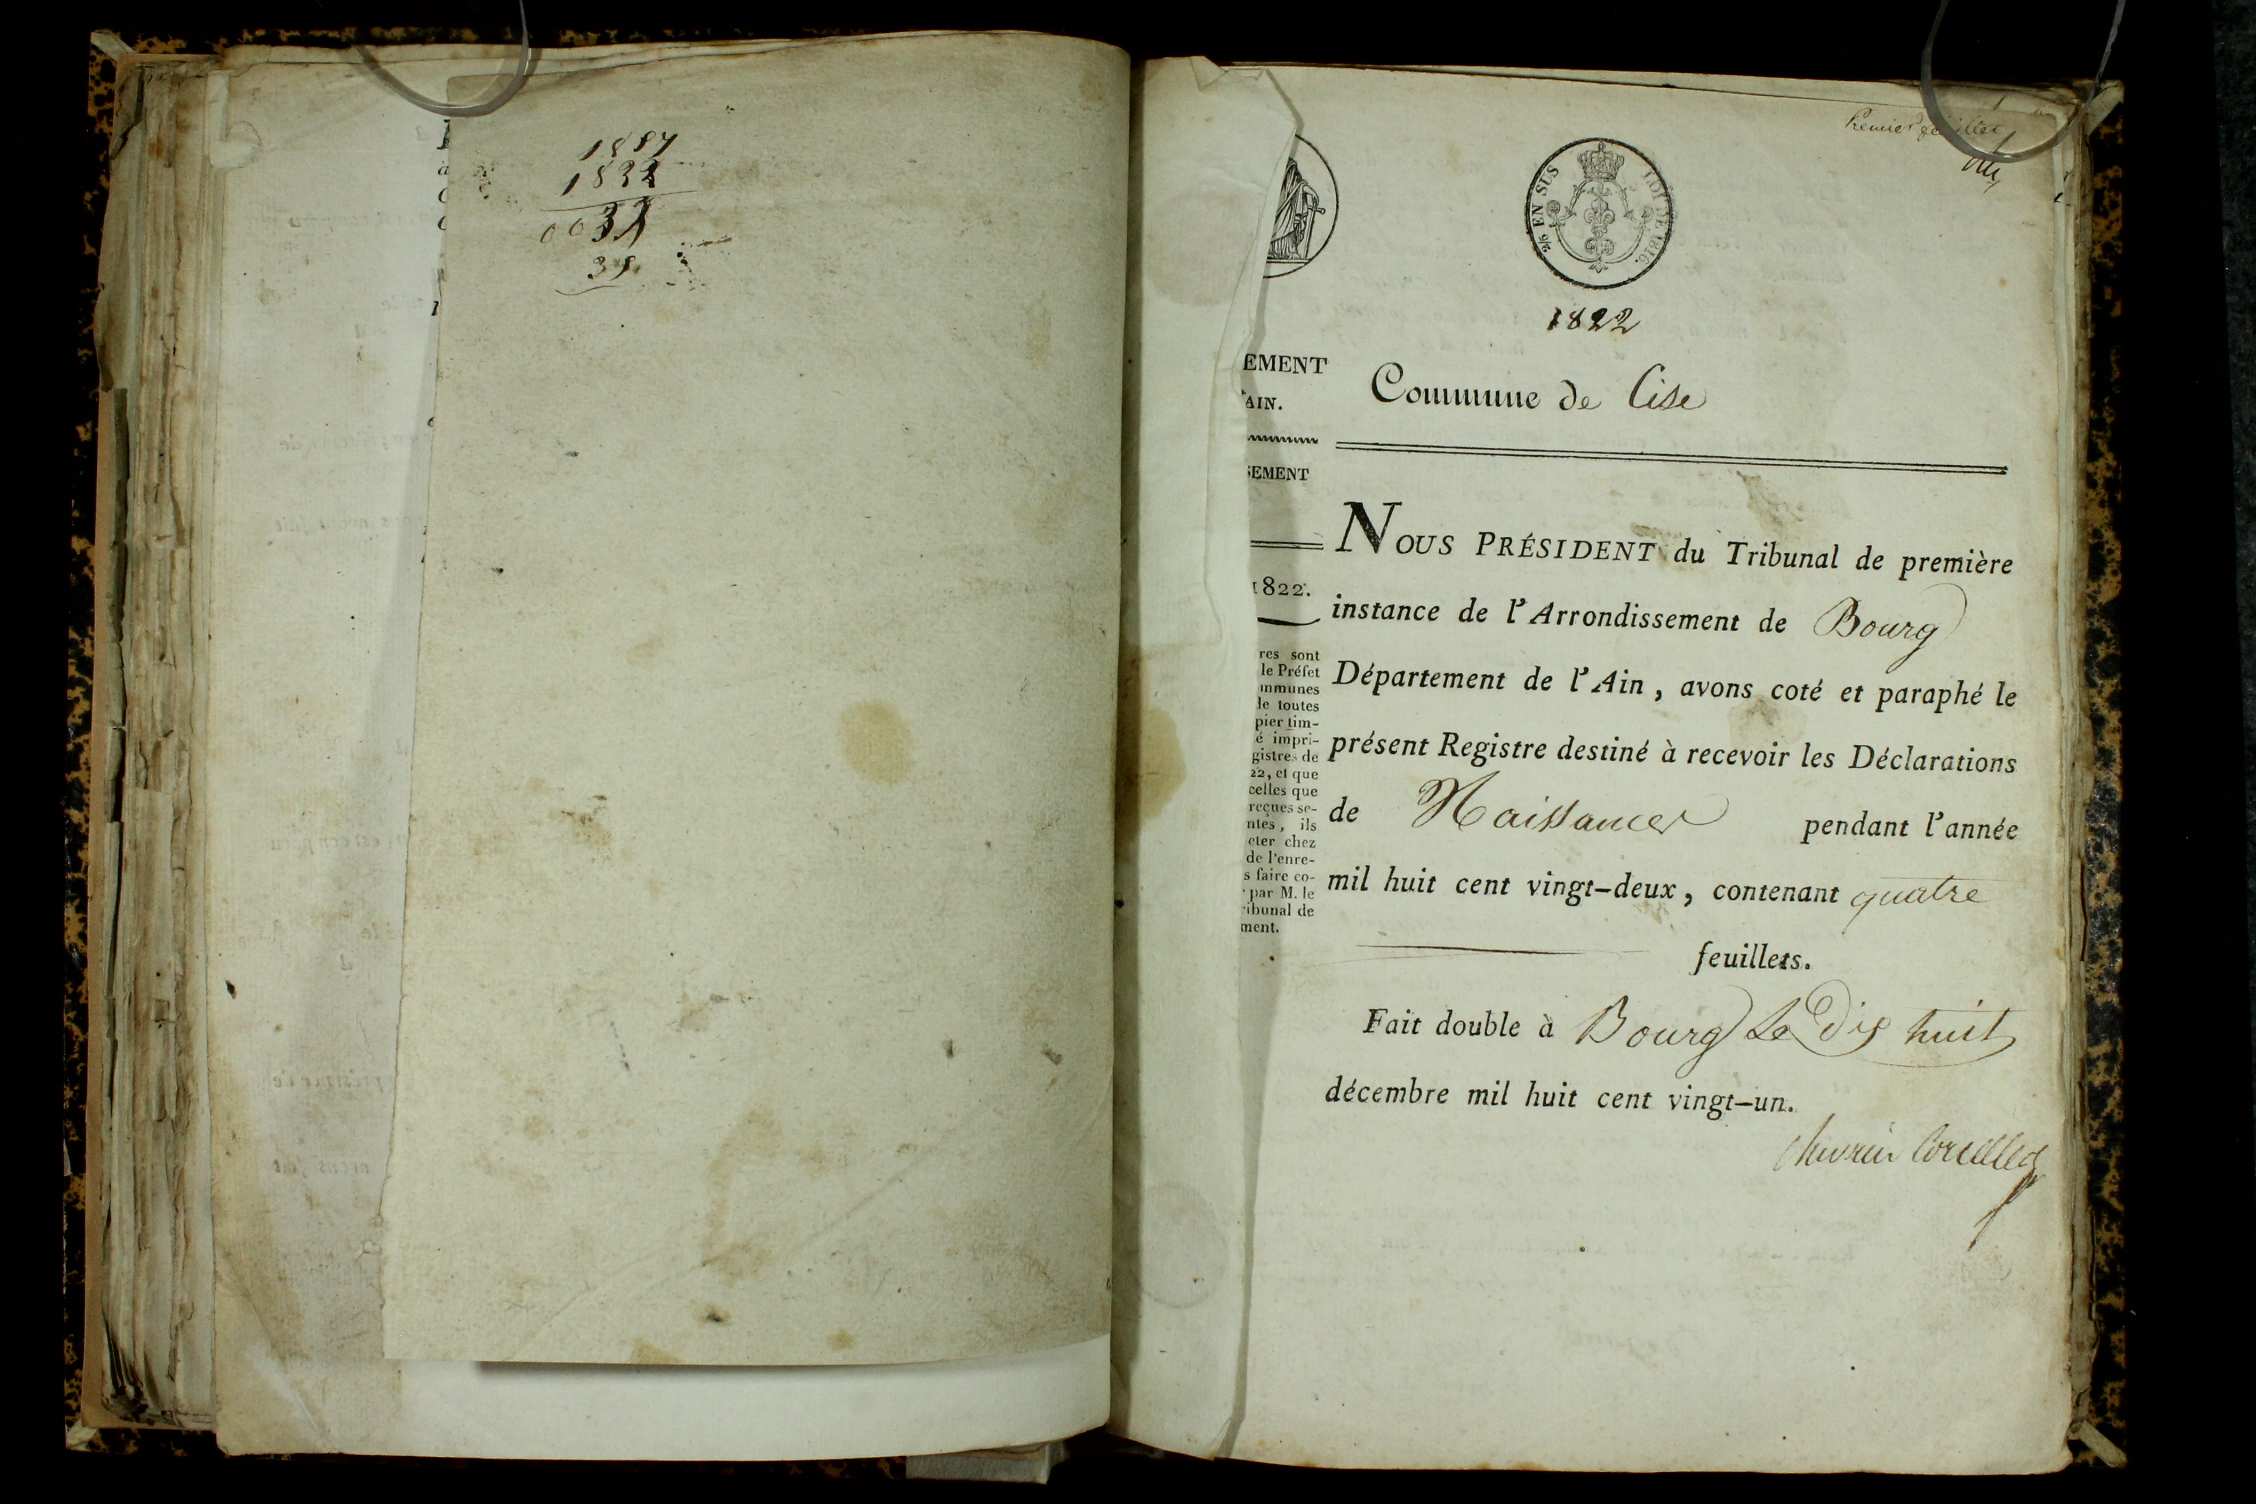 1832
Premier feuillet
2/6 EN SUS
LOI DE 1816.
1822
EMENT
AIN.
Commune de Cise
SEMENT
1822.
NOUS PRÉSIDENT du Tribunal de première
instance de l'Arrondissement de Bourg
Département de l'Ain, avons coté et paraphé le
présent Registre destiné à recevoir les Déclarations
de Naissances pendant l'année
mil huit cent vingt-deux, contenant quatre
feuillets.
Fait double à Bourg Le Dix huit
décembre mil huit cent vingt-un.
res sont
le Préfet
mmunes
de toutes
pier tim-
é impri-
gistres de
22, et que
celles que
reçues se-
ntes, ils
eter chez
de l'enre-
s faire co-
par M. le
ribunal de
ment.